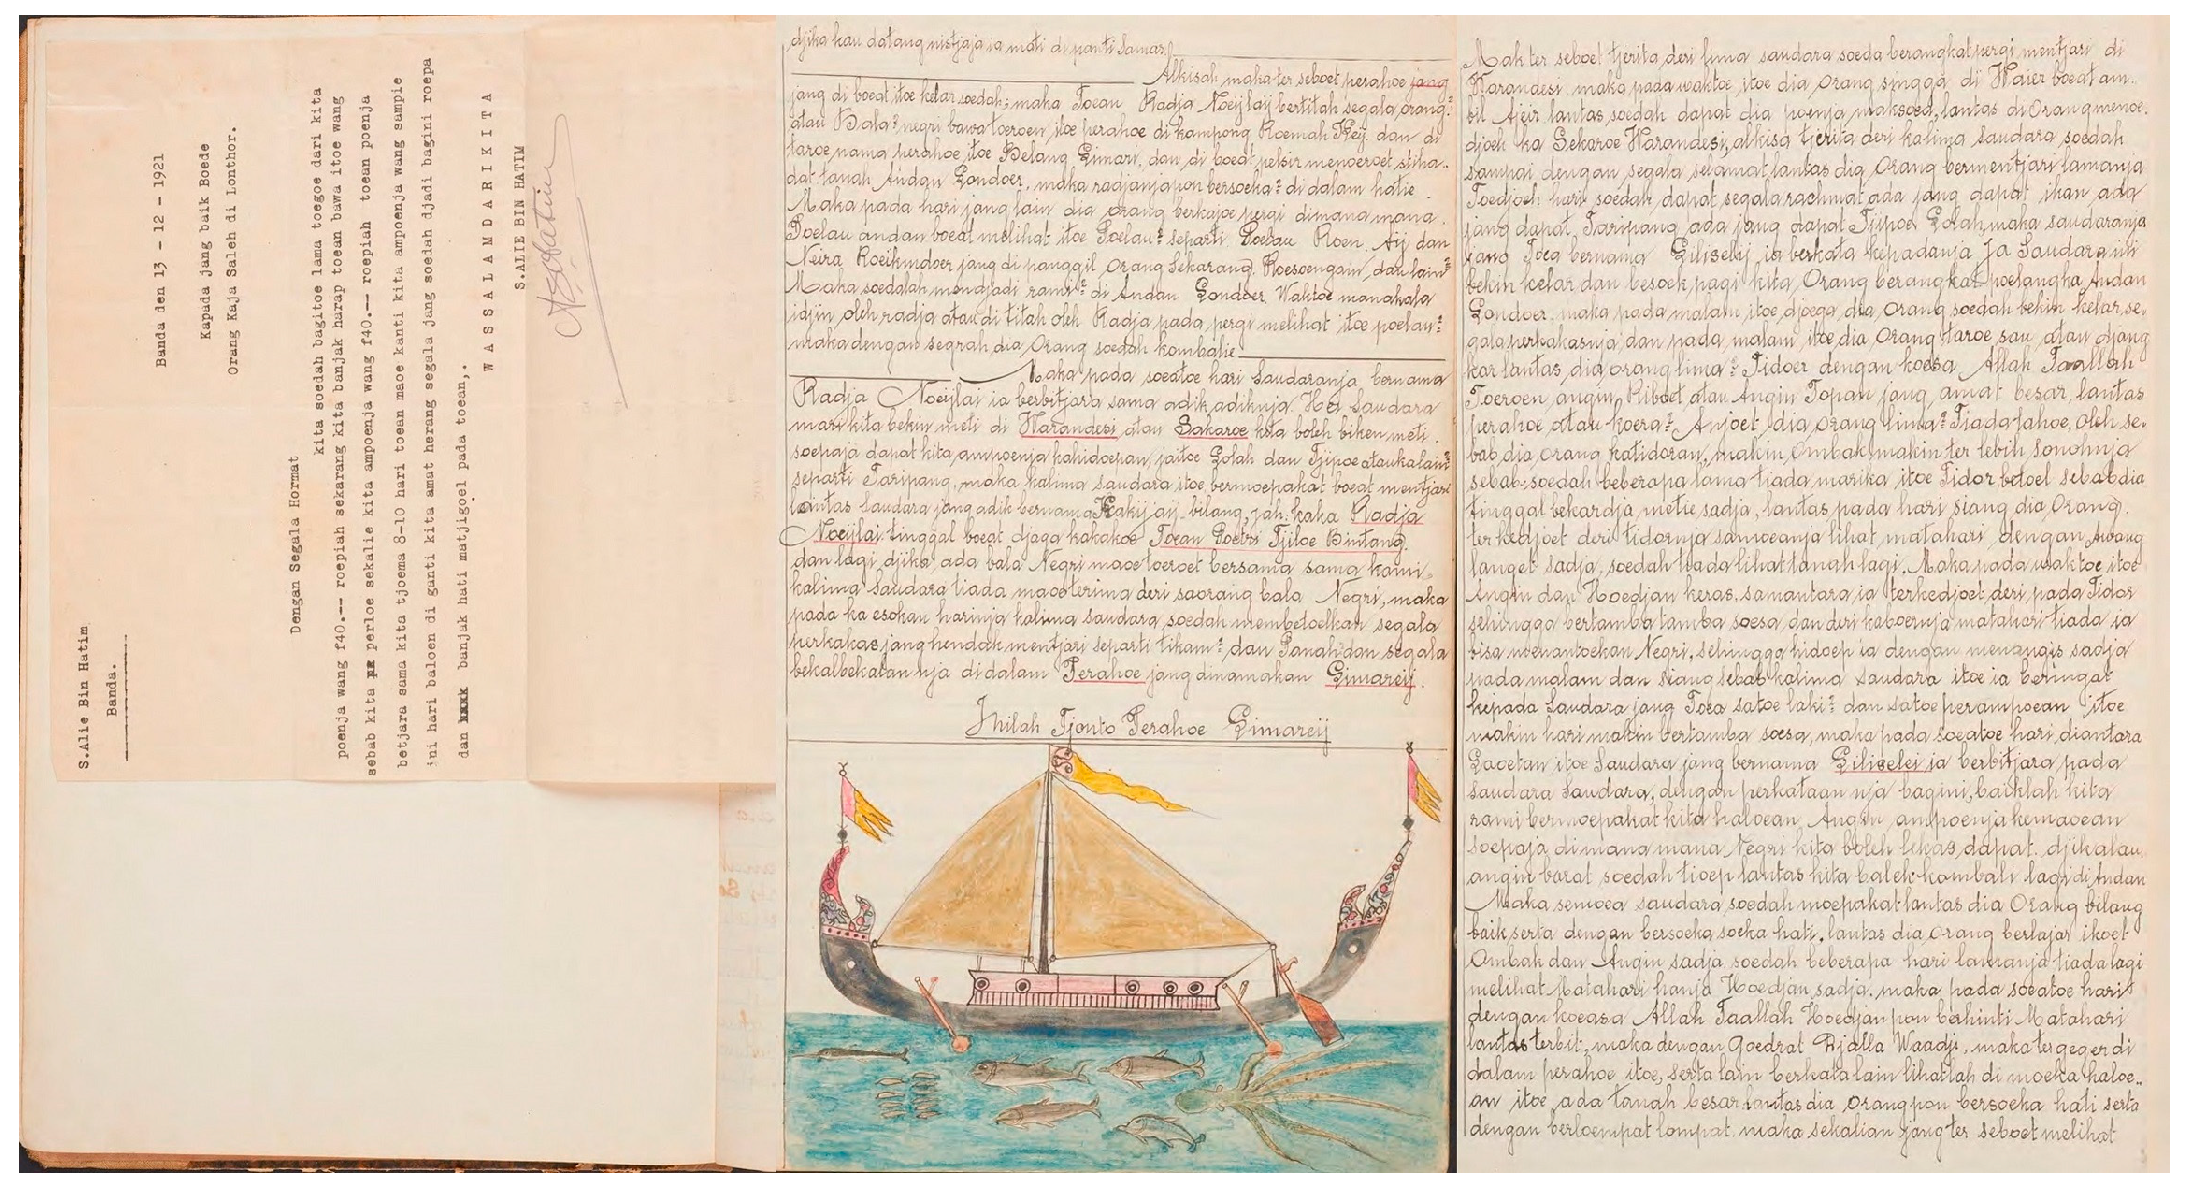 S.Alie Bin Hatim
Banda.
Banda den 13 - 12 - 1921
Kapada jang baik Boede
Orang Kaja Saleh di Lonthor.
Dengan Segala Hormat
kita soedah bagitoe lama toegoe dari kita
poenja wang f40.-- roepiah sekarang kita banjak harap toean bawa itoe wang
sebab kita perloe sekalie kita ampoenja wang f40.-- roepiah toean poenja
betjara sama kita tjoema 8-10 hari toean maoe kanti kita ampoenja wang sampie
ini hari baloen di ganti kita amat herang segala jang soedah djadi bagini roepa
dan banjak hati matjigel pada toean,.
W A S S A L A M D A R I K I T A
S.ALIE BIN HATIM
djika kau datang nistjaja ia mati di panti Samar
Alkisah, maka ter seboet perahoe jang
jang di boeat itoe kelar soedah; maka Toean Radja Noeijlaij bertitah segala orang2
atau Bala2 negri bawa toeroen, itoe perahoe di kampong Roemah Keij dan di
taroe nama perahoe itoe Belang Gimari, dan di boeat pelsir menoeroet stiha..
dat tanah Andan Londoer, maka radjanja pon bersoeka2 di dalam hatie
Maka pada hari jang lain dia orang berkajoe pergi dimana mana
Poelau andan boeat melihat itoe Poelau2 separti Poelau Roen, Aij dan
Neira Koeikmdoer jang di panggil Orang Sekarang. Roesoengain, dan lain2
Maka soedalah mendjadi rami2 di Andan Londoer. Waktoe manakala
idjin oleh radja atau di titah oleh Radja pada pergi melihat itoe poelau2
maka dengan segrah dia Orang soedah kombalie
Maka pada soeatoe hari Saudaranja bernama
Radja Noeijlai ia berbitjara sama adik adiknja Hei Saudara
mari kita bekin meti di Warandesi atau Sakaroe kita boleh biken meti
soepaja dapat kita, ampoenja kahidoepan, jaitoe Lolah dan Tjipoe ataukalain2
separti Taripang, maka kalima saudara itoe bermoepakat boeat mentjari
lantas saudara jang adik bernama Kakijaij bilang, jah. kaka Radja
Noeijlai tinggal boeat djaga kakakoe Toean Poetri Tjiloe Bintang.
dan lagi djika ada bala Negri maoe toeroet bersama sama kami
kalima Saudara tiada maoe terima deri saorang bala Negri, maka
pada ka esokan harinja kalima saudara soedah membetoelkan segala
perkakas jang hendak mentjari separti tikam2 dan Panah dan segala
bekalbekalan nja di dalam Perahoe jang dinamakan Gimareij.
Inilah Tjonto Perahoe Gimareij
Mak ter seboet tjerita deri lima saudara soeda berangkat pergi mentjari di
Warandesi maka pada waktoe itoe dia Orang singga di Waier boeat am..
bil Ajeir lantas soedah dapat dia poenja maksoed, lantas di Orang menoe.
djoeh ka Sekaroe Warandesi, alkisa tjerita deri kalima saudara soedah
sampai dengan segala selamat lantas dia Orang bermentjari lamanja
Toedjoeh hari soedah dapat segala rachmat ada jang dapat ikan ada
jang dapat Taripang ada jang dapat Tjipoe Lolah, maka saudaranja
jang Toea bernama Giliseleij ia berkata kepadanja Ja Saudara
bekin kelar dan besoek pagi kita Orang berangkat poelang ka Andan
Londoer. maka pada malam itoe djoega dia Orang soedah bekin kelar, se..
gala perkakasnja, dan pada malam itoe dia Orang taroe sau atau djang
kar lantas, dia orang lima2 Tidoer dengan koasa Allah Taallah
Toeroen, angin Riboet atau Angin Topan jang amat besar, lantas
perahoe atau koera2 Anjoet, dia Orang lima2 Tiada tahoe, oleh se.
bab, dia, orang katidoran, makin Ombak, makin ter lebih sonohnja
sebab, soedah beberapa lama tiada marika itoe Tidor betoel sebab dia
tinggal bekardja metie sadja, lantas pada hari siang dia, Orang.
terkedjoet deri tidornja samoeanja lihat matahari dengan Awang
langet sadja, soedah tiada lihat tanah lagi. Maka pada waktoe itoe
Angin dan Hoedjan keras, samantara ia terkedjoet, deri pada Tidor
sehingga bertamba tamba soesa, dan deri kaboernja matahari tiada ia
bisa menantoekan Negri, sehingga hidoep ia dengan menangis sadja
pada malam dan siang sebab kalima saudara itoe ia beringat
kepada Saudara jang Toea satoe laki2 dan satoe perampoean itoe
makin hari makin bertamba soesa, maka pada soeatoe hari, diantara
Laoetan itoe Saudara jang bernama Giliselei ia berbitjara pada
saudara Saudara, dengan perkataan nja bagini, baiklah kita
rami bermoepakat kita haloean, Angin, ampoenja kemaoean
soepaja dimana mana Negri kita boleh lekas, dapat. djikalau
angin barat soedah tioep lantas kita balek kombali lagi di Andan
Maka semoea saudara soedah moepakat lantas dia Orang bilang
baik serta dengan bersoeka soeka hati. lantas dia orang berlajar ikoet
Ombak dan Angin sadja soedah beberapa hari lamanja tiada lagi
melihat Matahari hanja Hoedjan sadja. maka pada soeatoe hari
dengan koeasa Allah Taallah Hoedjan pon berhinti Matahari
lantas terbit, maka dengan Qoedrat Djalla Waadji, maka tergeger di
dalam perahoe itoe, serta lain berkata lain lihatlah di moeka haloe..
an itoe ada tanah besar lantas dia orang pon bersoeka hati serta
dengan berloempat lompat maka sekalian jang ter seboet melihat